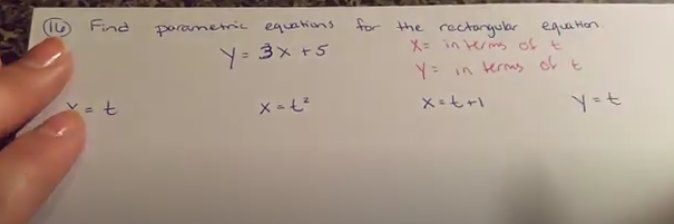 16 Find parametric equations for the rectangular equation.
y = 3x + 5
x = in terms of t
y = in terms of t
x = t x = t² x = t + 1 y = t